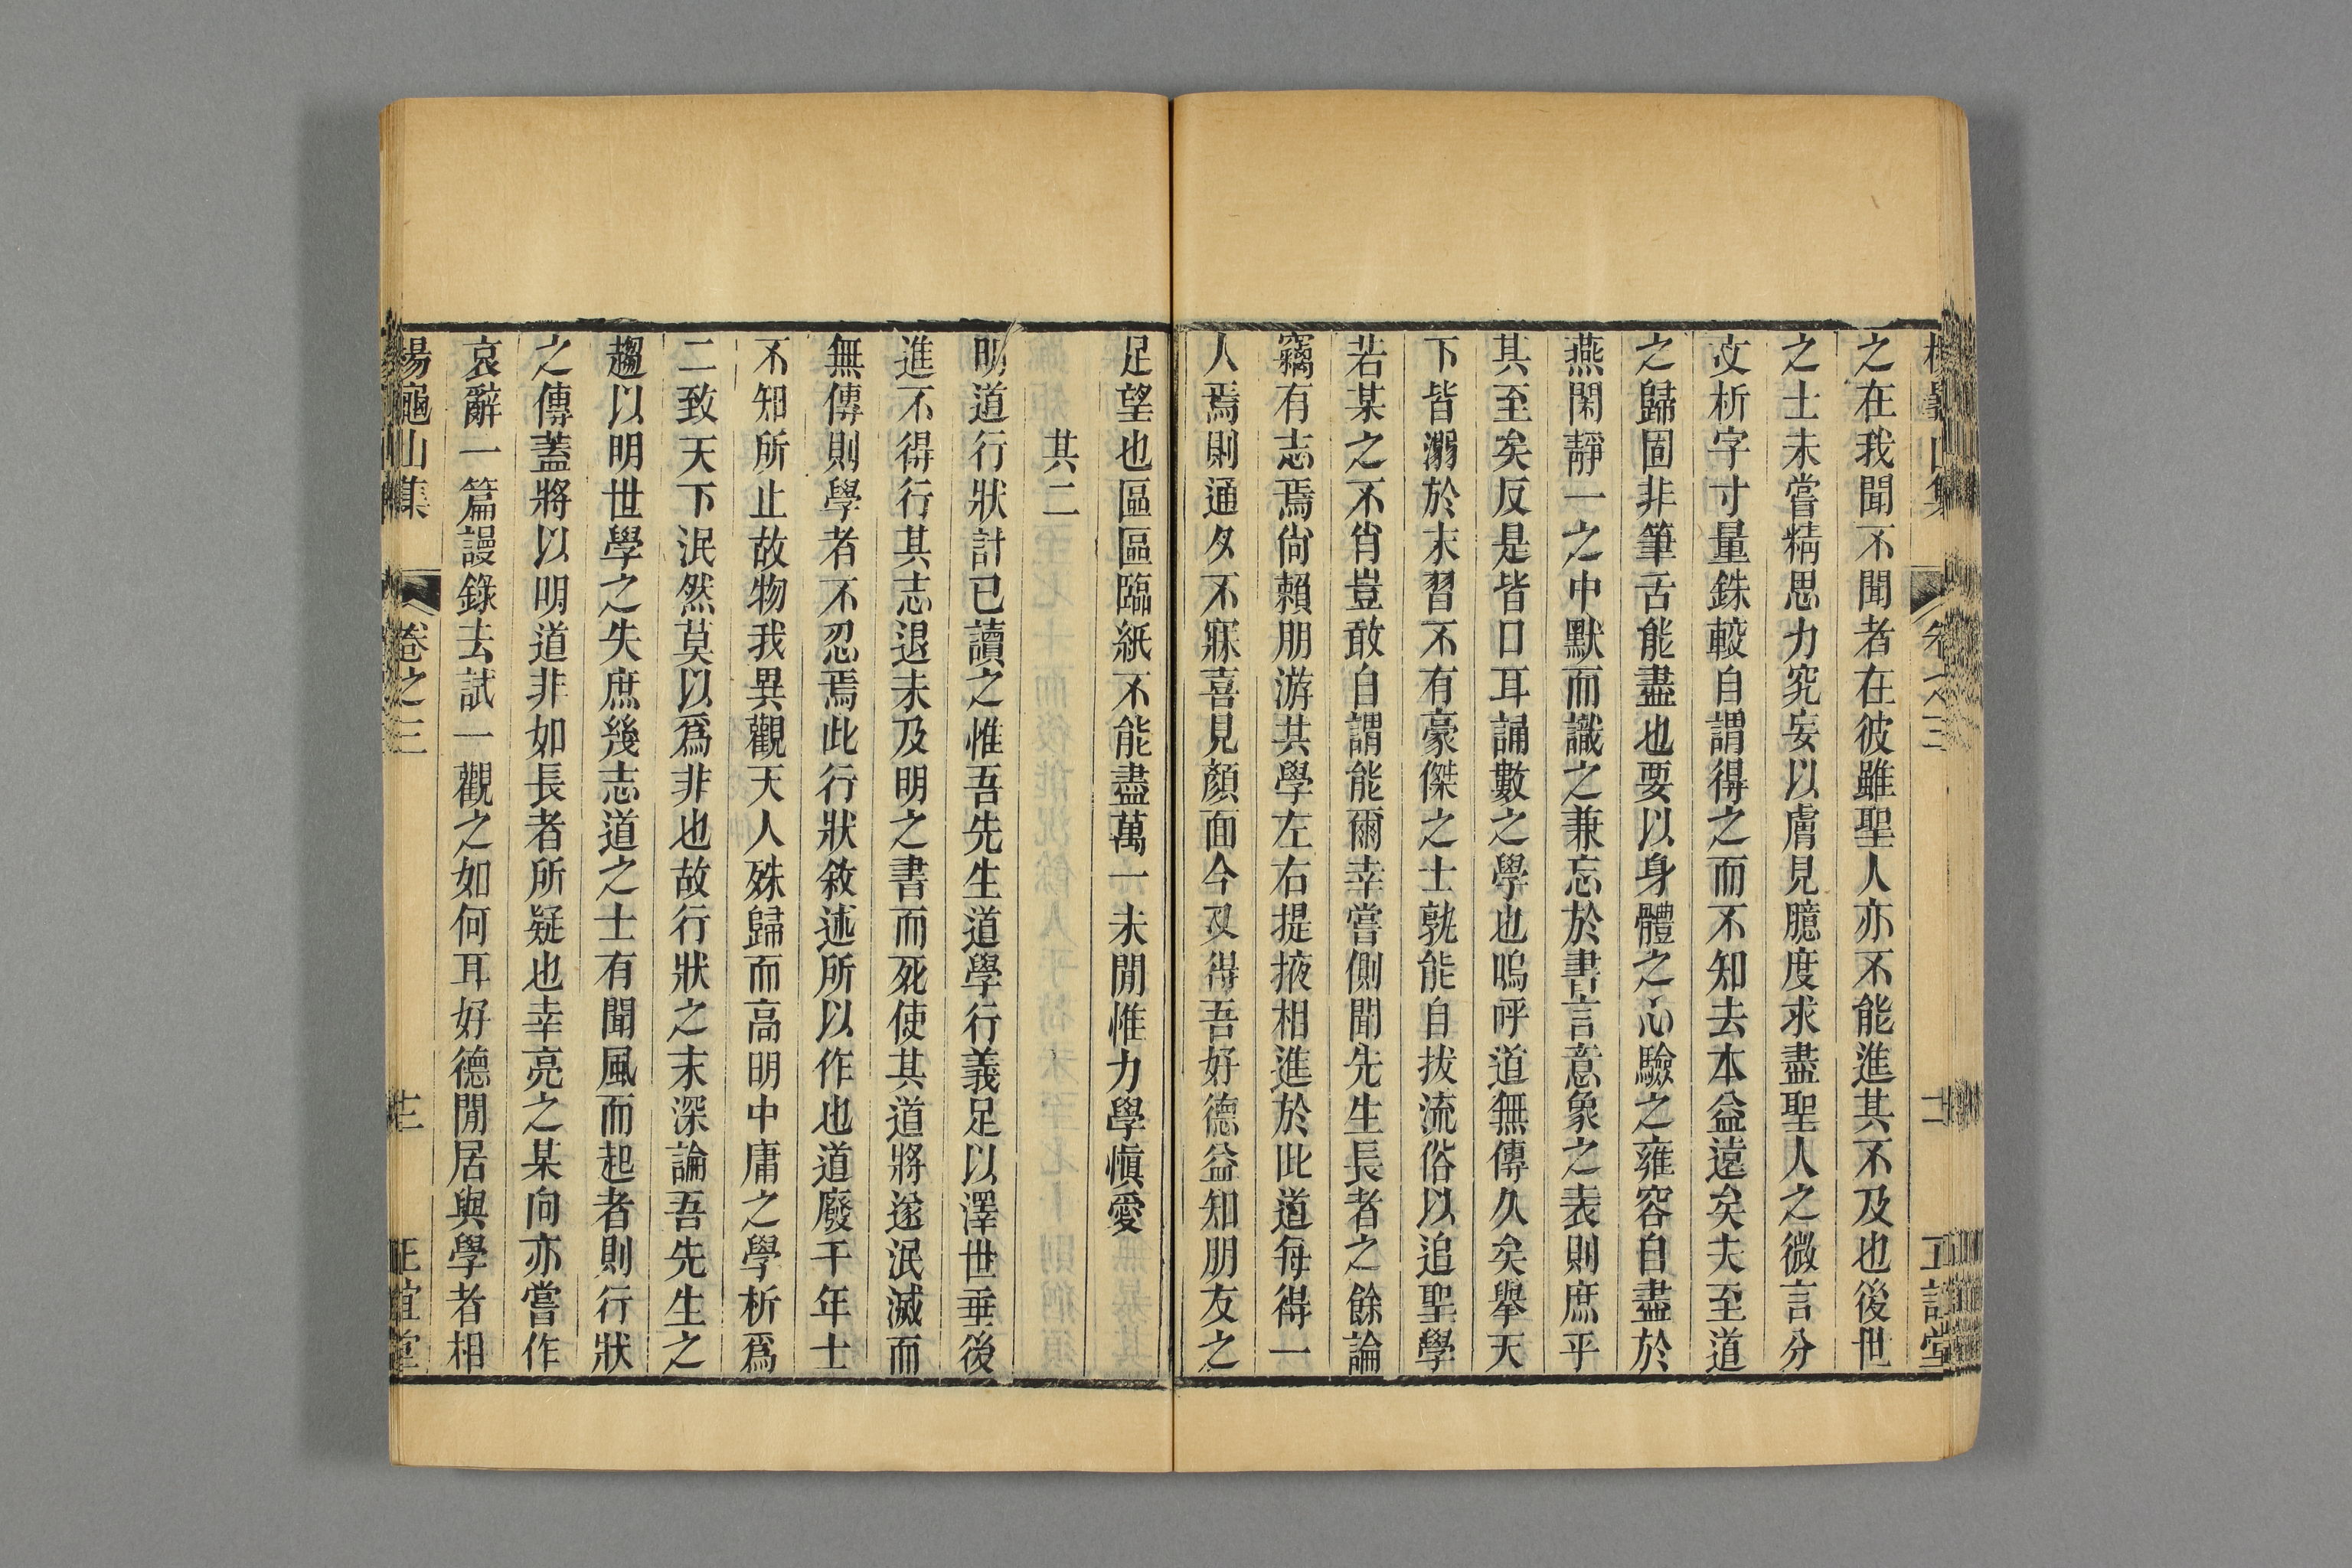 之在我聞不聞者在彼雖聖人亦不能進其不及也後世
之士未嘗精思力究妄以膚見臆度求盡聖人之微言分
文析字寸量銖較自謂得之而不知去本益遠矣夫至道
之歸固非筆舌能盡也要以身體之心驗之雍容自盡於
燕閑靜一之中默而識之兼忘於書言意象之表則庶乎
其至矣反是皆口耳誦數之學也嗚呼道無傳久矣舉天
下皆溺於末習不有豪傑之士孰能自拔流俗以追聖學
若某之不肖豈敢自謂能爾幸嘗側聞先生長者之餘論
竊有志焉尙賴朋游共學左右提掖相進於此道每得一
人焉則通夕不寐喜見顏面今又得吾好德益知朋友之
足望也區區臨紙不能盡萬一未閒惟力學愼愛
其二
明道行狀計已讀之惟吾先生道學行義足以澤世垂後
進不得行其志退未及明之書而死使其道將遂泯滅而
無傳則學者不忍焉此行狀敘述所以作也道廢千年士
不知所止故物我異觀天人殊歸而高明中庸之學析爲
二致天下泯然莫以爲非也故行狀之末深論吾先生之
趨以明世學之失庶幾志道之士有聞風而起者則行狀
之傳蓋將以明道非如長者所疑也幸亮之某向亦嘗作
哀辭一篇謾錄去試一觀之如何耳好德閒居與學者相
楊龜山集 卷之三 正誼堂